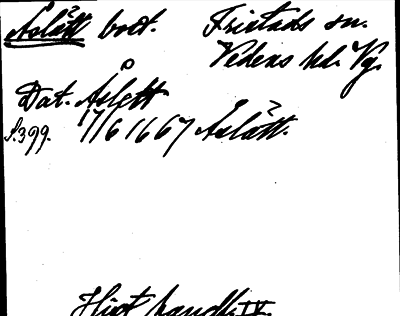 Åslått bost. Fristads sn.
Vedens hd. Vg.
Dat. Åslett
S.399. 17/6 1667 Åslått.
Hist handl. IV.